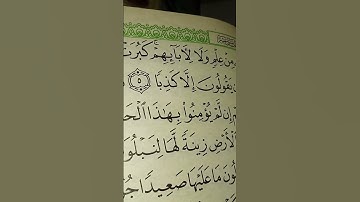 مِنْ عِلْمٍ وَلَا لِأَبَآئِهِمْ ۚ كَبُرَتْ
يَقُولُونَ إِلَّا كَذِبًا ٥
إِن لَّمْ يُؤْمِنُوا۟ بِهَٰذَا ٱلْحَ
ٱلْأَرْضِ زِينَةً لَّهَا لِنَبْلُوَ
مَا عَلَيْهَا صَعِيدًا جُ